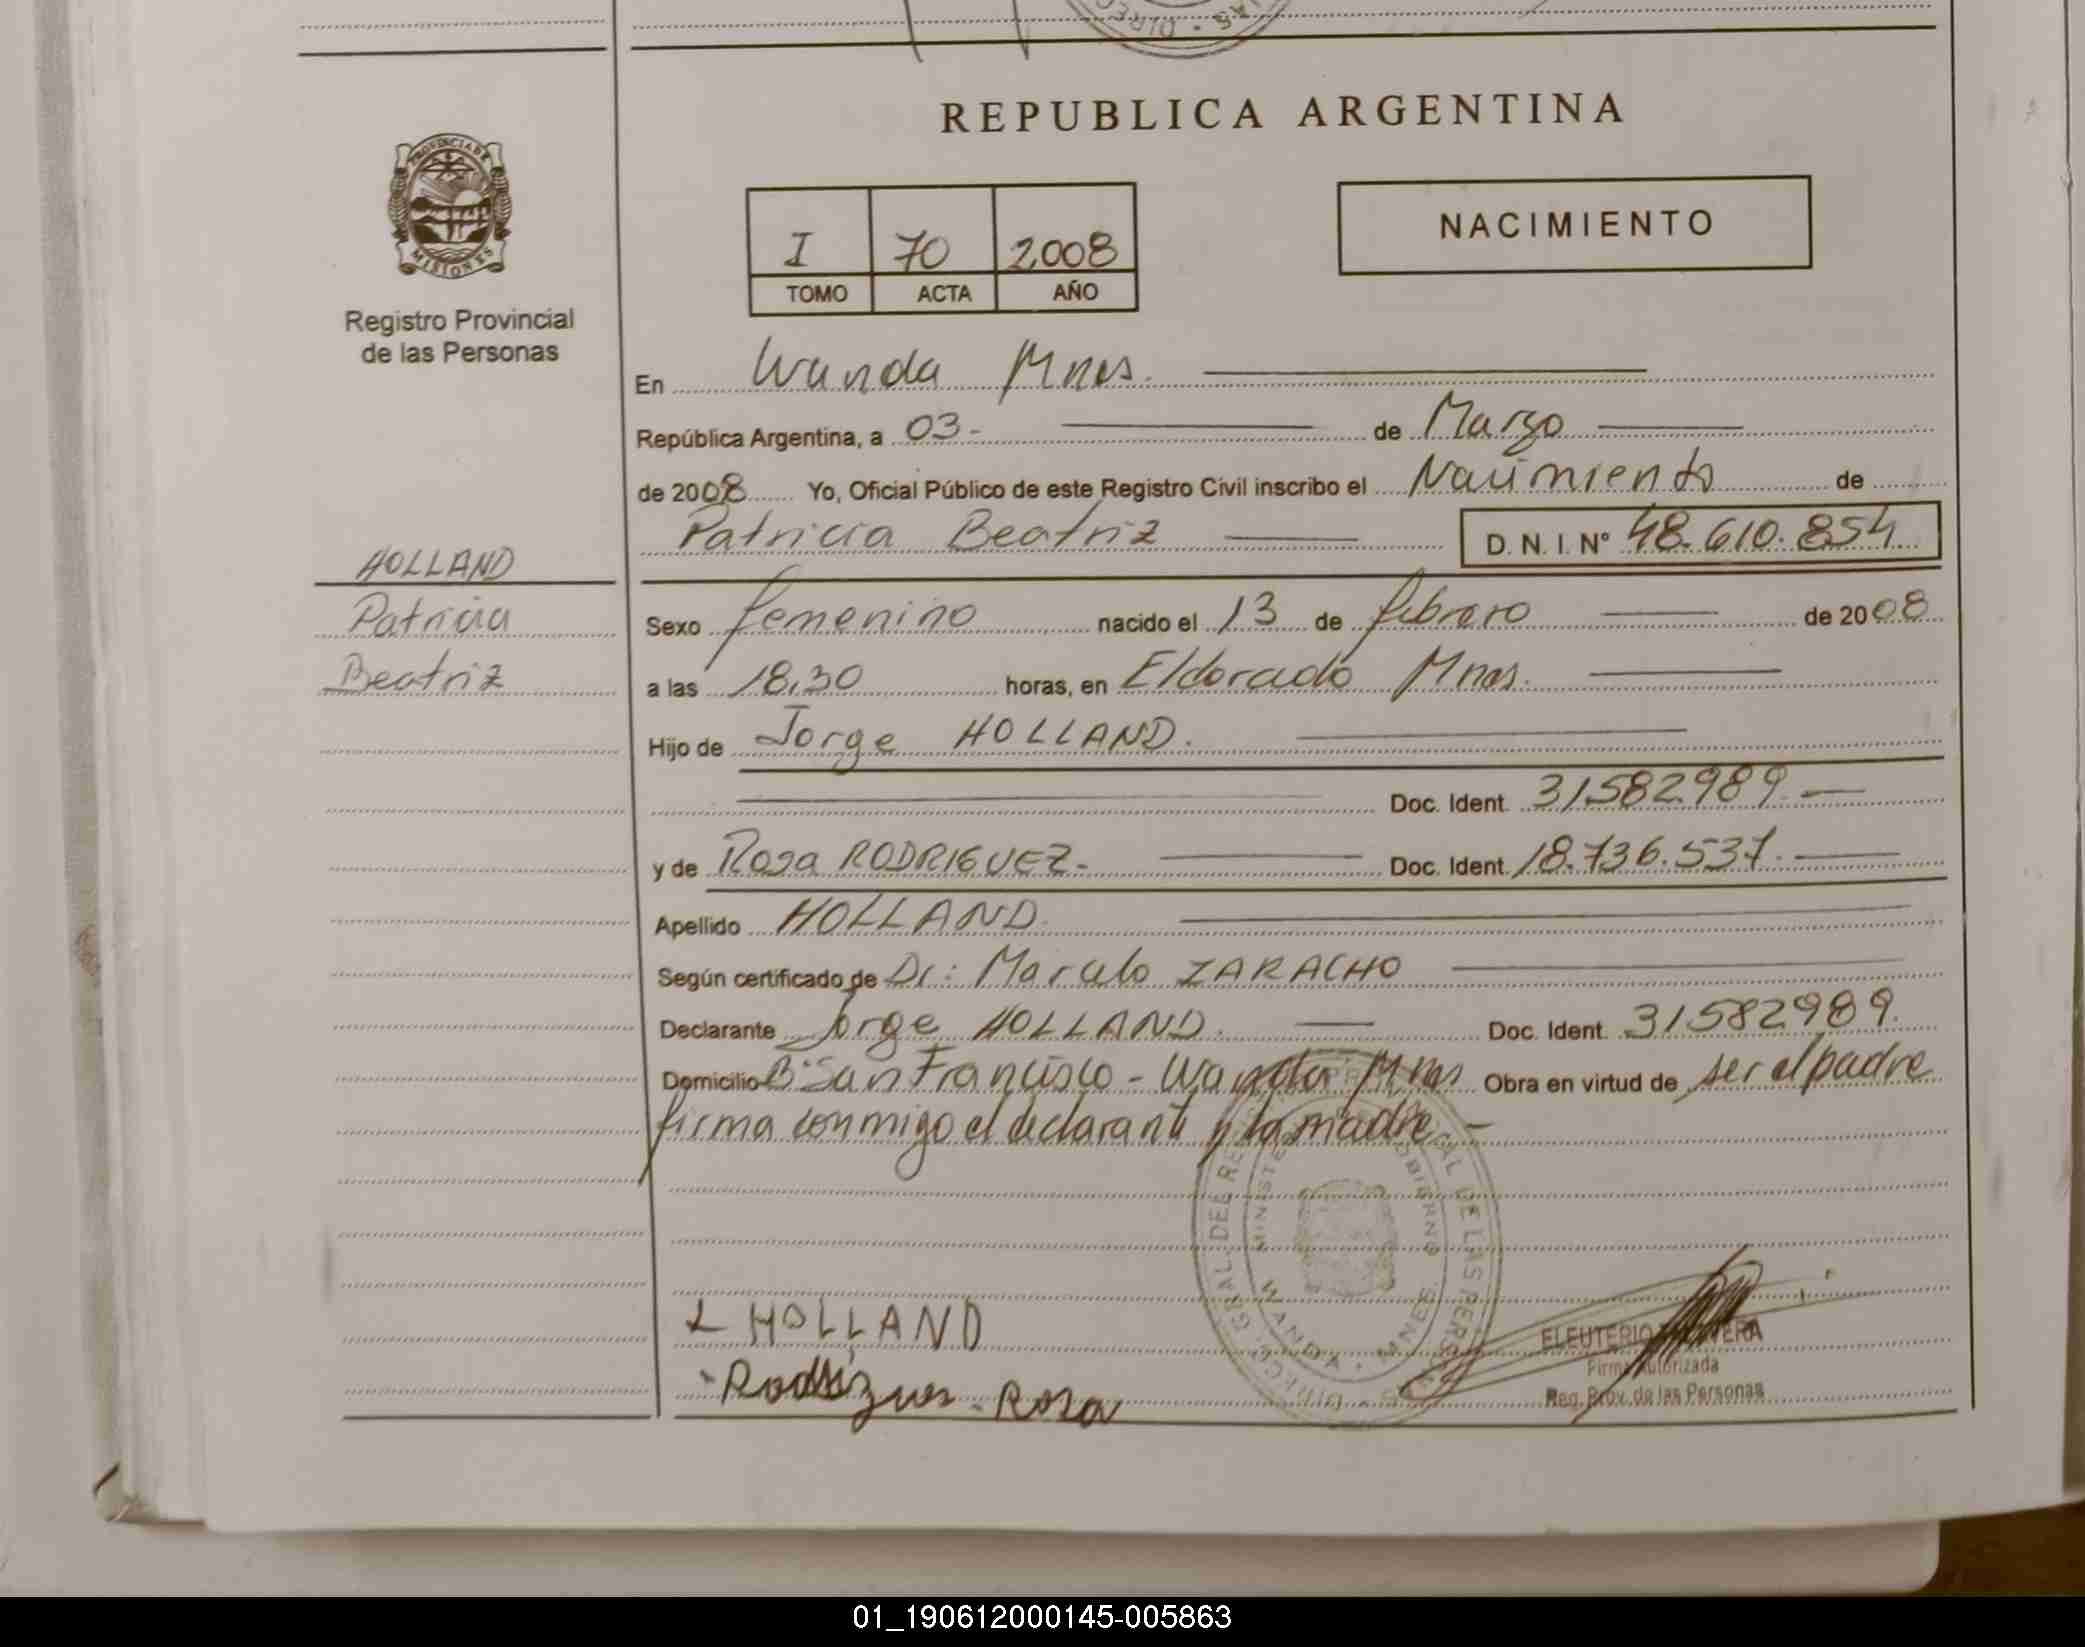 REPUBLICA ARGENTINA
PROVINCIA DE
MISIONES
Registro Provincial
de las Personas
NACIMIENTO
I 70 2008
TOMO ACTA AÑO
En Wanda Mnes.
República Argentina, a 03- de Marzo
de 2008 Yo, Oficial Público de este Registro Civil inscribo el Nacimiento de
Patricia Beatriz D. N. I. Nº 48.610.854
HOLLAND
Patricia
Beatriz
Sexo femenino nacido el 13 de febrero de 2008
a las 18,30 horas, en Eldorado Mnes.
Hijo de Jorge HOLLAND.
Doc. Ident. 31582989.
y de Rosa RODRIGUEZ- Doc. Ident. 18.736.537.
Apellido HOLLAND.
Según certificado de Dr: Marcelo ZARACHO
Declarante Jorge HOLLAND. Doc. Ident. 31582989.
Domicilio Bº San Francisco - Wanda Mnes Obra en virtud de ser el padre
firma conmigo el declarante y la madre.-
HOLLAND
Rodríguez Rosa
WANDA - MNES
ELEUTERIO
Firma Autorizada
Reg. Prov. de las Personas
01_190612000145-005863